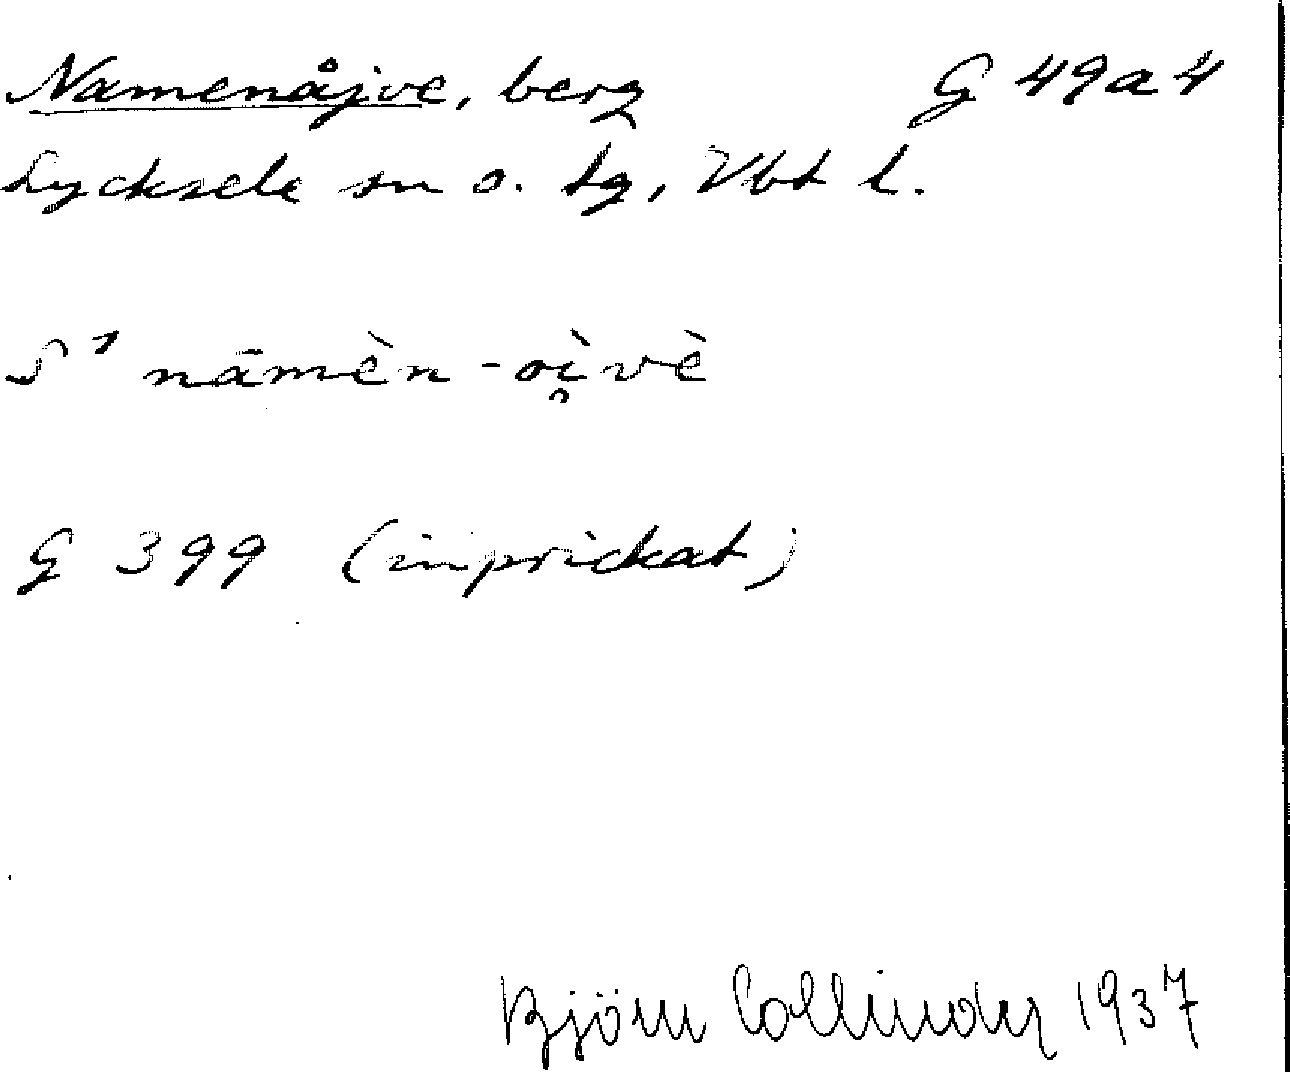 Namenåjve, berg G 49a4
Lycksele sn o. tg, Vbt l.
S¹ nāmèn-oì̯vè
G 399 (inprickat)
Björn Collinder 1937